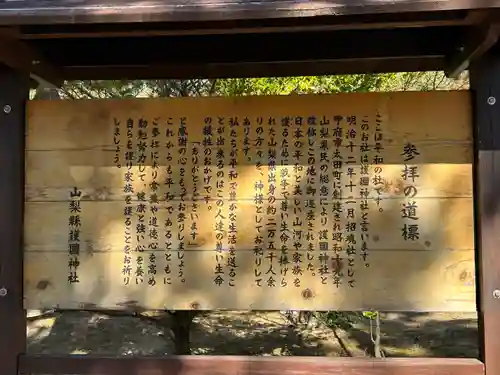 参拝の道標
ここは平和の社です。
このお社は護國神社と言います。
明治十二年十一月招魂社として
甲府市太田町に創建され昭和十九年
山梨県民の総意により護國神社と
改称しこの地に御遷座されました。
日本の平和と美しい山河や家族を
護るために戦争で尊い生命を捧げら
れた山梨県出身の約二万五千余人
の方々を、神様としてお祀りして
あります。
私たちが平和で豊かな生活を送るこ
とが出来るのはこの人達の尊い生命
の犠牲のおかげです。
「ありがとうございます」
と感謝の心をもってお参りしましょう。
これからも平和であるとともに
ご参拝により常識や道徳心を高め
勤勉努力して、健康と強い心を養い
自らを護り家族を護ることをお祈り
しましょう。
山梨縣護國神社